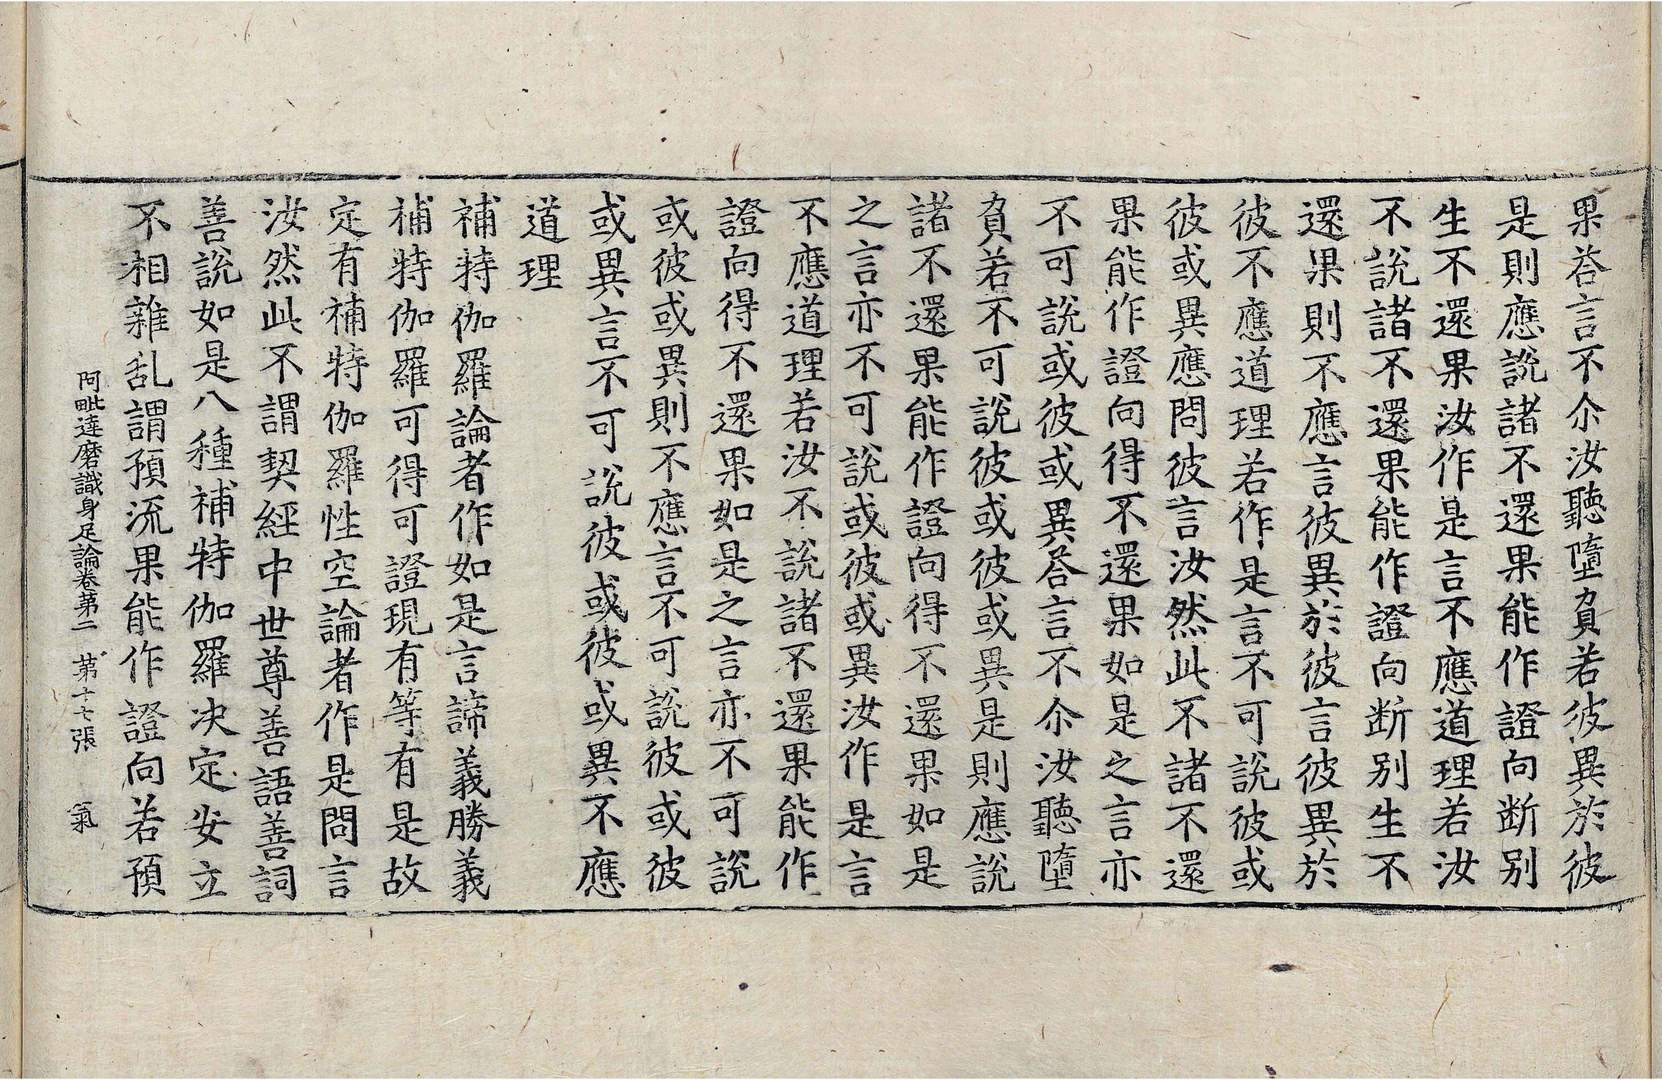 果荅言不尒汝聽墮負若彼異於彼
是則應說諸不還果能作證向断别
生不還果汝作是言不應道理若汝
不說諸不還果能作證向断别生不
還果則不應言彼異於彼言彼異於
彼不應道理若作是言不可說彼或
彼或異應問彼言汝然此不諸不還
果能作證向得不還果如是之言亦
不可說或彼或異荅言不尒汝聽墮
負若不可說彼或彼或異是則應說
諸不還果能作證向得不還果如是
之言亦不可說或彼或異汝作是言
不應道理若汝不說諸不還果能作
證向得不還果如是之言亦不可說
或彼或異則不應言不可說彼或彼
或異言不可說彼或彼或異不應
道理
補特伽羅論者作如是言諦義勝義
補特伽羅可得可證現有等有是故
定有補特伽羅性空論者作是問言
汝然此不謂契經中世尊善語善詞
善說如是八種補特伽羅决定安立
不相雜乱謂預流果能作證向若預
阿毗達磨識身足論卷第二 第十七張 氣